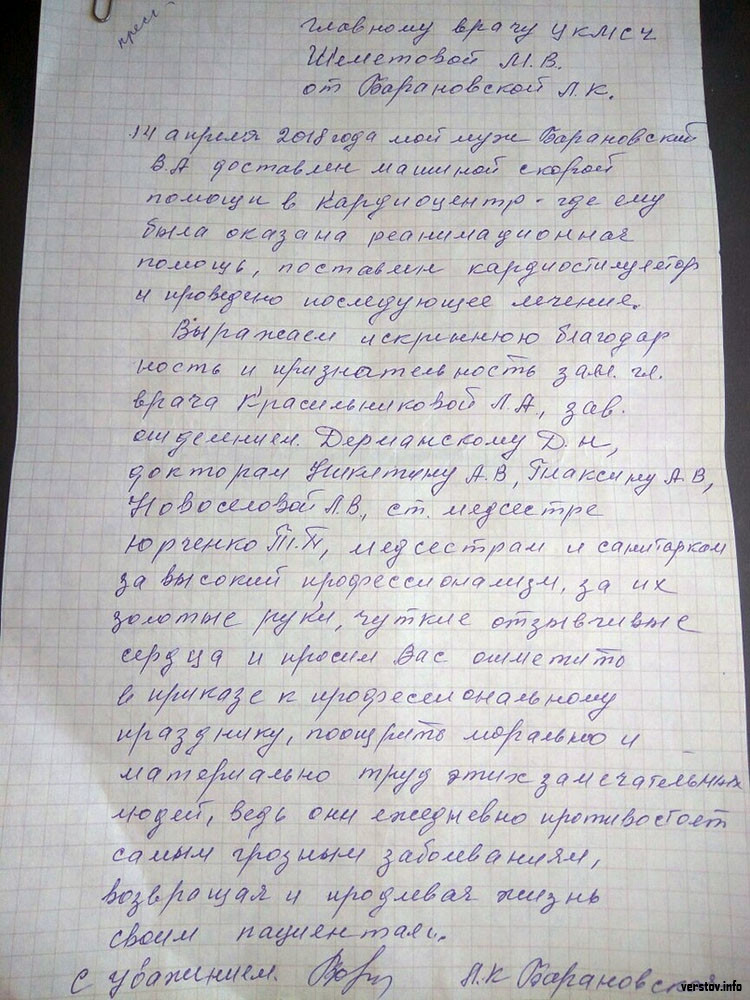 пресс
главному врачу ЦКМСЧ
Шеметовой М.В.
от Барановской Л.К.
14 апреля 2018 года мой муж Барановский
В.А доставлен машиной скорой
помощи в Кардиоцентр - где ему
была оказана реанимационная
помощь, поставлен кардиостимулятор
и проведено последующее лечение.
Выражаем искреннюю благодар
ность и признательность зам. гл.
врача Красильниковой Л.А., зав.
отделением Дерманскому Д.Н,
докторам Никитину А.В, Плаксину А.В,
Новоселовой Л.В., ст. медсестре
Юрченко Т.П, медсестрам и санитаркам
за высокий профессионализм, за их
золотые руки, чуткие отзывчивые
сердца и просим Вас отметить
в приказе к профессиональному
празднику, поощрить морально и
материально труд этих замечательных
людей, ведь они ежедневно противостоят
самым грозным заболеваниям,
возвращая и продлевая жизнь
своим пациентам.
с уважением. Л.К Барановская
verstov.info